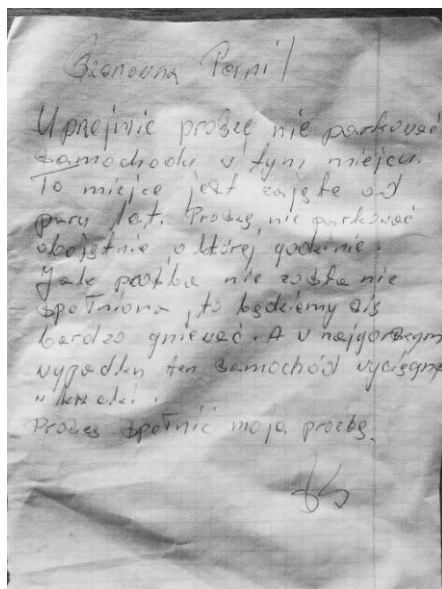 Szanowna Pani!
Uprejmie proszę nie parkować
samochodu w tym miejcu.
To miejce jest zajęte od
paru lat. Proszę nie parkować
obojętnie o której godzinie.
Jak prośba nie zosta nie
spełniona, to będziemy się
bardzo gniewać. A w najgorszym
wypadku ten samochód wyciągnę
w krzaki.
Proszę spełnić moja prośbę.